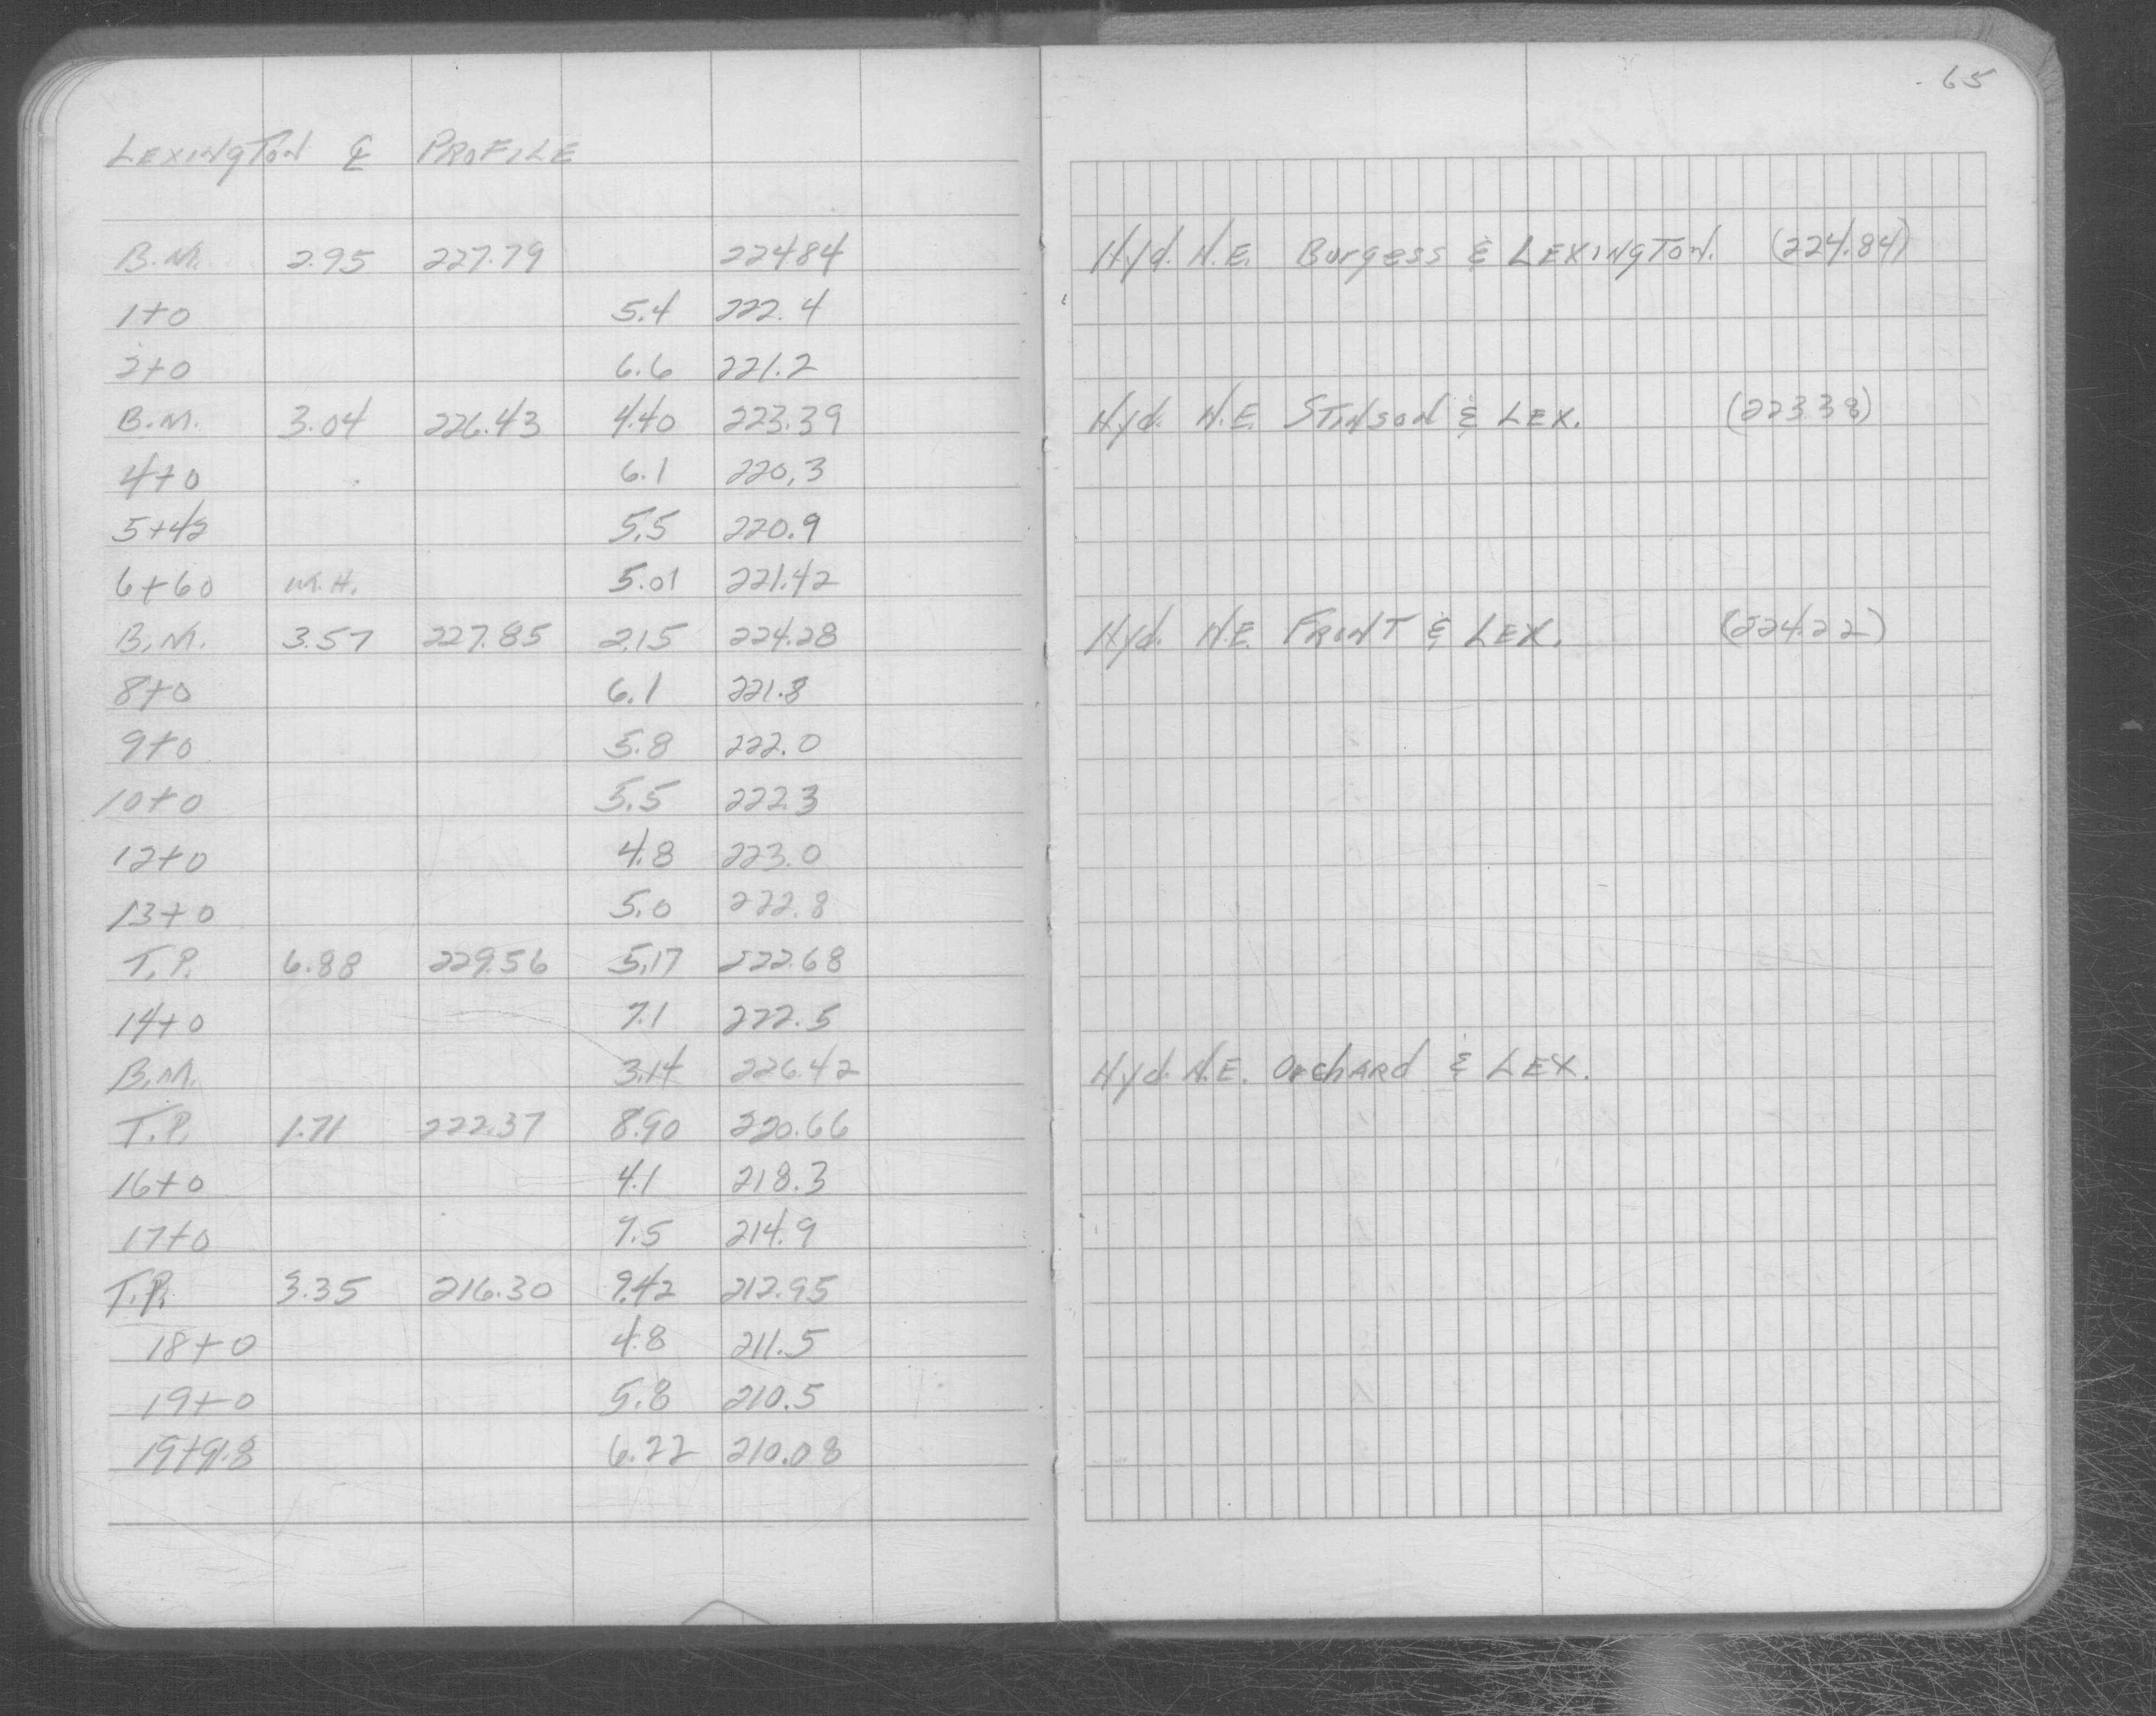 65
LEXINGTON ℄ PROFILE
B.M. 2.95 227.79 224.84 Hyd. N.E. Burgess & LEXINGTON. (224.84)
1+0 5.4 222.4
2+0 6.6 221.2
B.M. 3.04 226.43 4.40 223.39 Hyd. N.E. STINSON & LEX. (223.38)
4+0 6.1 220.3
5+42 5.5 220.9
6+60 M.H. 5.01 221.42
B.M. 3.57 227.85 2.15 224.28 Hyd. N.E. FRONT & LEX. (224.22)
8+0 6.1 221.8
9+0 5.8 222.0
10+0 5.5 222.3
12+0 4.8 223.0
13+0 5.0 222.8
T.P. 6.88 229.56 5.17 222.68
14+0 7.1 222.5
B.M. 3.14 226.42 Hyd. N.E. Orchard & LEX.
T.P. 1.71 222.37 8.90 220.66
16+0 4.1 218.3
17+0 7.5 214.9
T.P. 3.35 216.30 9.42 212.95
18+0 4.8 211.5
19+0 5.8 210.5
19+91.8 6.22 210.08